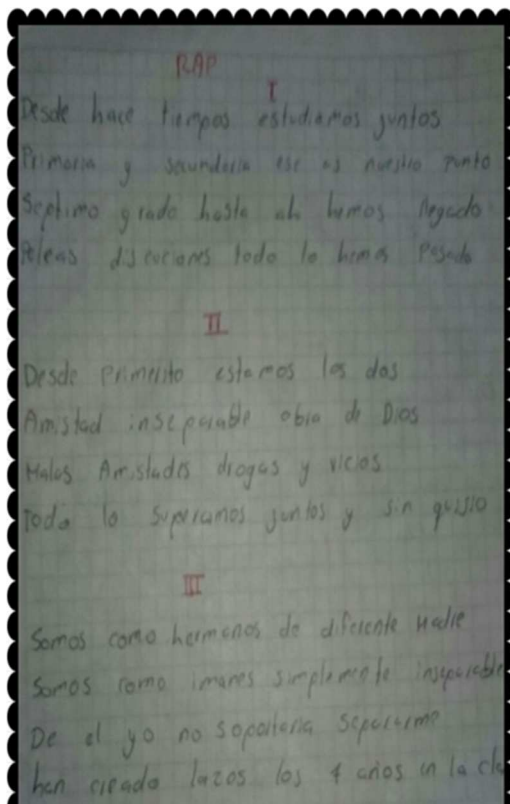 RAP
I
Desde hace tiempos estudiamos juntos
Primaria y secundaria ese es nuestro punto
Septimo grado hasta ah hemos llegado
Peleas discuciones todo lo hemos Pasado
II
Desde Primerito estamos los dos
Amistad inseparable obra de Dios
Malas Amistades drogas y vicios
Todo lo superamos juntos y sin
III
Somos como hermanos de diferente Madre
Somos como imanes simplemente inseparable
De el yo no soportaria separarme
han creado lazos los 4 años en la cla